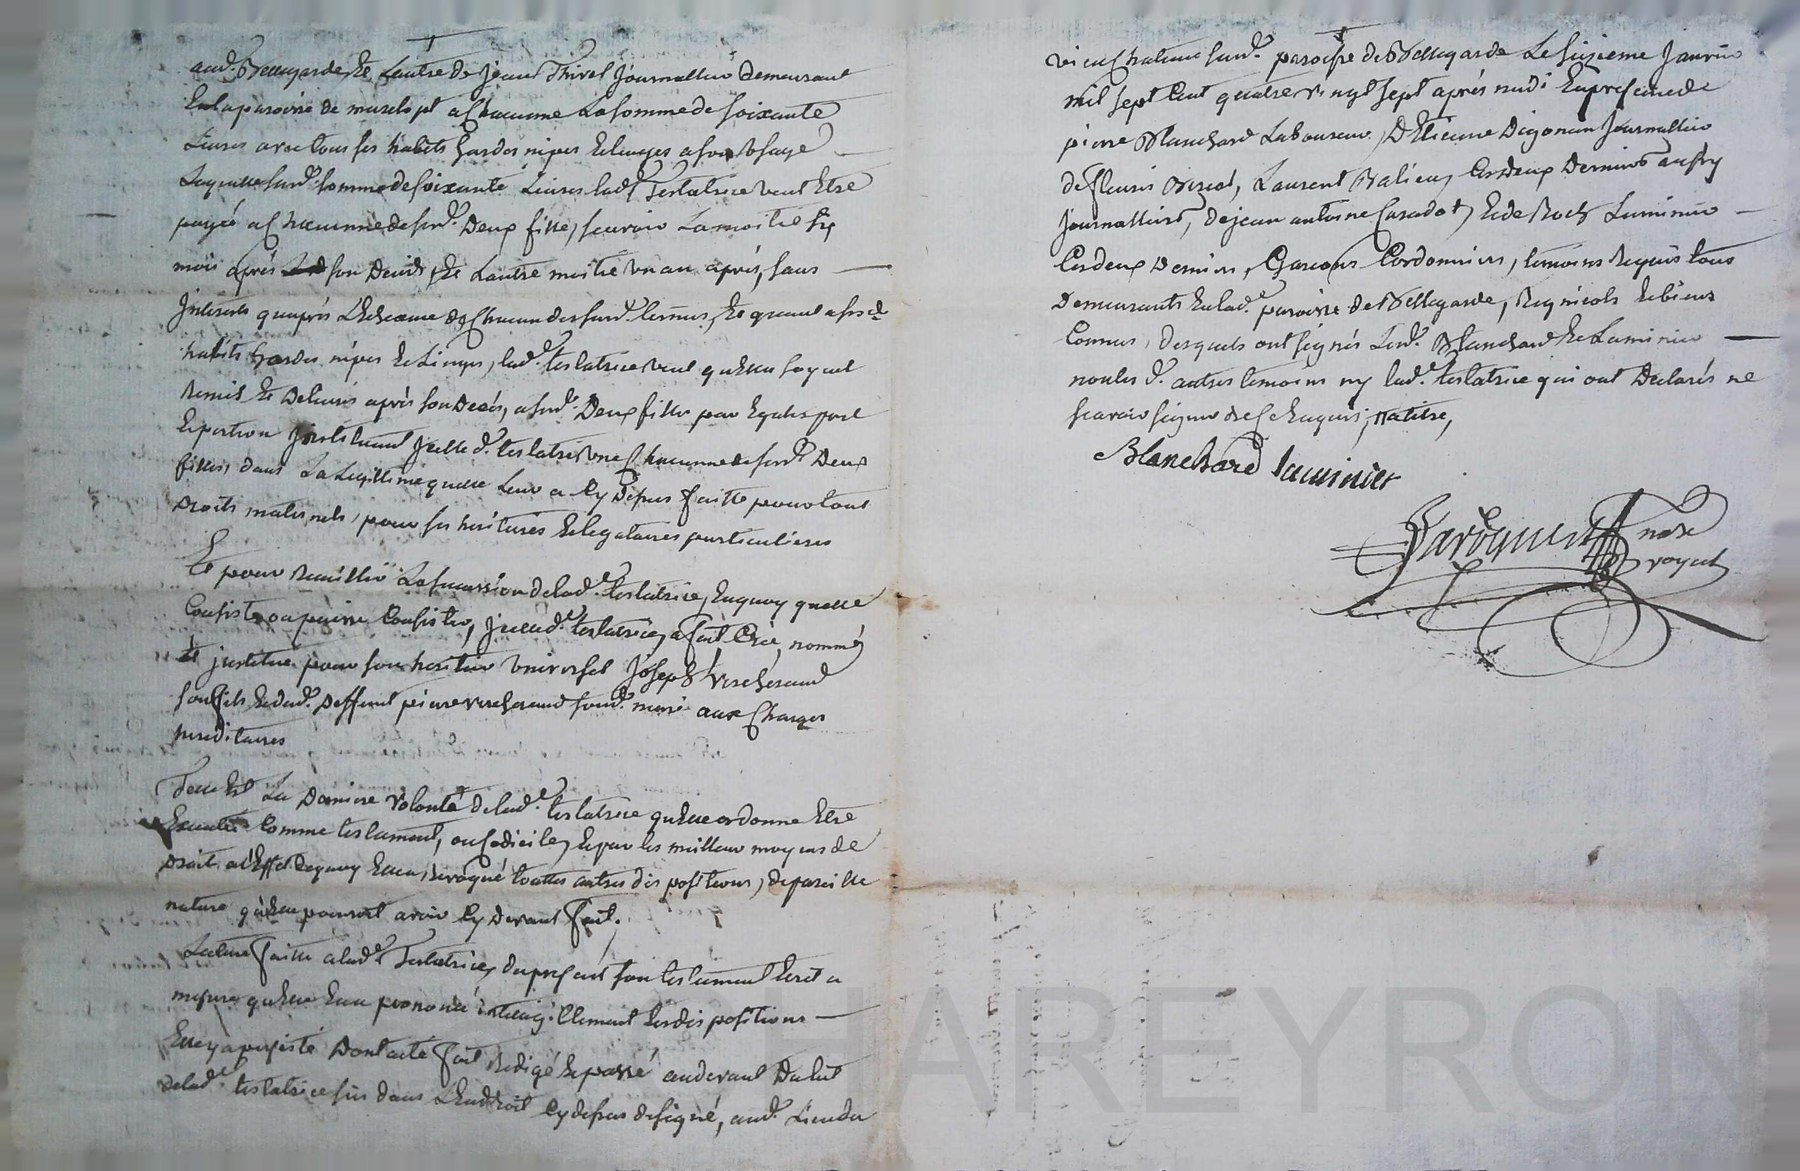 aud. Bellegarde, Et Lautre de Jean Thivel Journallier demeurant
En la paroisse de a Chacunne La somme de soixante
Livres avec tous ses habits hardes nipes Et linges a son Usage
Laquelle surd.e somme de soixante Livres lad.e Testatrice veut Etre
payée a Chacunne de surd.e Deux fille, scavoir La moitié six
mois après son Deceds, Et Lautre moitié un an après, sans
Interets quaprès L'Echeance de Chacun des surd. termes, Et quand a ses d.
habits hardes nipes Et Linges, lad.e testatrice veut quElles soyent
remis Et Delivrés après son Decés, a surd.e Deux filles par Egales part
Et portion Instituant Icelle d. testatrice Chacunne de surd.e Deux
filles, dans La Legitime quelle Leur a Cy Dessus faitte pour tout
Droits maternels, pour ses heritieres Et legataires particulieres
Et pour Recuillir La succession de lad.e testatrice, En quoy quelle
Consiste ou puisse Consister, Icelle d.e testatrice, a fait Crée, nommé
et institué pour son heritier Universel Joseph Vercherand
son fils Et dud. Deffunt pierre Vercherand surd. mari aux Charges
hereditaires
Telle Est La Derniere Volonté de lad.e testatrice quElle ordonne Etre
Executée Comme testament, ou Codicile, Et par les meilleur moyens de
Droit a l'Effet de quoy Elle a, revoqué touttes autres dispositions, de pareille
nature quElle pourroit avoir Cy Devant fait.
Lecture faitte a lad.e Testatrice, du present son testament Ecrit a
mesure quElle En a prononcé inteligiblement les dispositions
Elle y a persisté Dont acte fait Redigé Et passé audevant Du lit
de lad.e testatrice sis dans L'Endroit Cy dessus designé, aud. Lieu du
vieu Chateau surd. paroisse de Bellegarde Le sizieme Janvier
mil sept Cent quatre vingt sept après midi En presence de
pierre Blanchard Laboureur, D'Etienne Journallier
de fleuris Laurent Les deux Derniers aussy
Journalliers, de jean antoine Et de Roch Luminier
Les deux Derniers, Garcons Cordonniers, temoins Requis tous
Demeurants En lad.e paroisse de Bellegarde, Regnicols Et bien
Connus, desquels ont signés Led. Blanchard Et Luminier
non les d. autres temoins ny lad.e testatrice qui ont Declarés ne
scavoir signer de Ce Enquis,
Blanchard luminier
nore
royal
HAREYRON